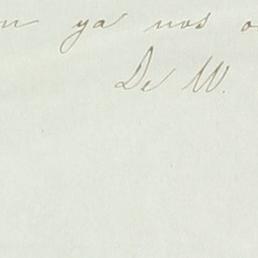 ya nos
De W.